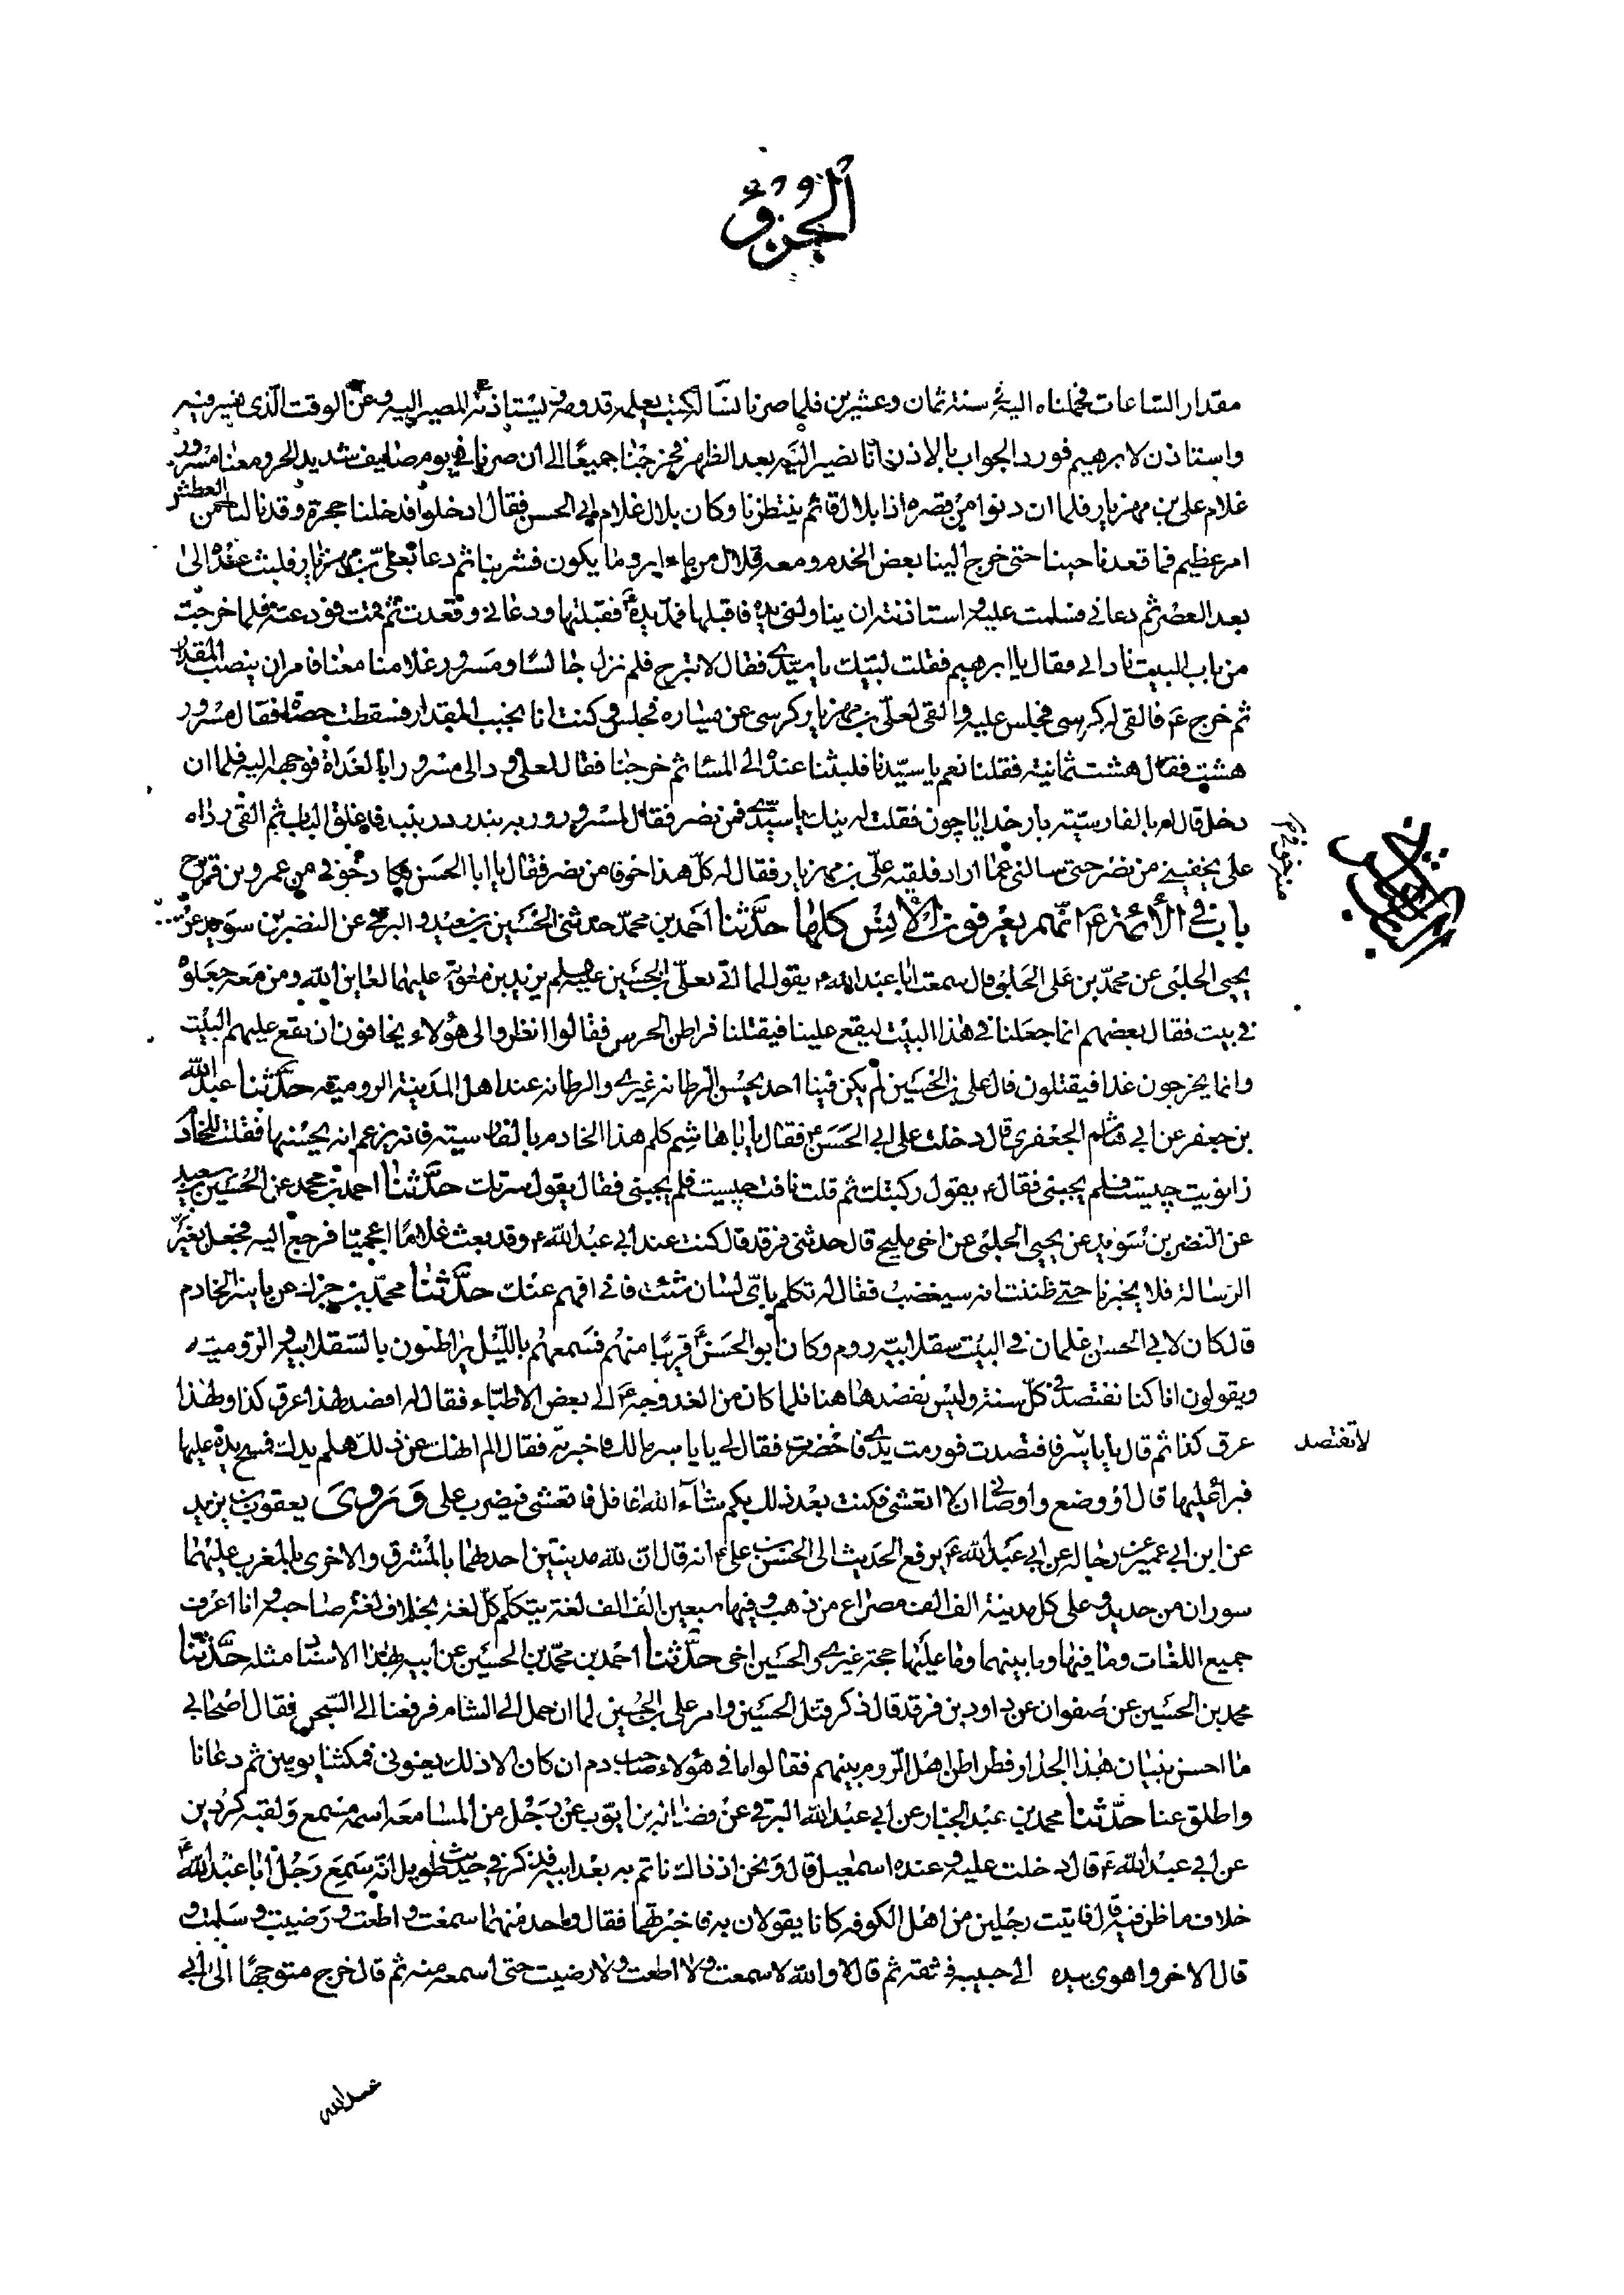 الجزؤ
مقدار الساعات فحملناه اليه في سنة ثمان وعشرين فلما صرنا كتب يعلمه قدومه ويستاذنه المصير اليه وعن الوقت الذى نصير فيه
واستاذن لابرهيم فورد الجواب بالاذن انا نصير اليه بعد الظهر فخرجنا جميعًا الى ان صرنا في يوم صايف شديد الحر ومعنا مسرور
غلام على بن مهزيار فلما ان دنوا من قصره اذا بلال قائم ينتظرنا وكان بلال غلام ابي الحسن فقال ادخلوا فدخلنا حجرة وقد نالنا من العطش
امر عظيم فما قعدنا حينا حتى خرج الينا بعض الخدم ومعه قلال من ماء ابرد ما يكون فشربنا ثم دعا بعلي بن مهزيار فلبث عنده الى
بعد العصر ثم دعاني فسلمت عليه واستاذنته ان يناولني يده فاقبلها فمد يده ع فقبلتها ودعاني وقعدت ثم قمت فودعته فلما خرجت
من باب البيت ناداني فقال يا ابرهيم فقلت لبيك يا سيدي فقال لا تبرح فلم نزل جالسًا ومسرور غلامنا معنا فامر ان ينصب المقدار
ثم خرج ع فالقى له كرسى فجلس عليه والقى لعلى بن مهزيار كرسى عن يساره فجلس وكنت انا بجنب المقدار فسقطت حصاة فقال مسرور
هشت فقال هشت ثمانية فقلنا نعم يا سيدنا فلبثنا عنده الى المسا ثم خرجنا فقال لعلى رد الى مسرور ا بالغداة فوجهه اليه فلما ان
دخل قال له بالفارسية بار خدايا چون فقلت له نيك يا سيدي فمر نصر فقال لمسرور در ببند در ببند فاغلق الباب ثم القى رداه
على يخفينى من نصر حتى سالنى عما اراد فلقيه على بن مهزيار فقال له كل هذا خوفا من نصر فقال يا ابا الحسن يكاد خوفى من عمرو بن قرح
باب في الأئمة ع انهم يعرفون الألسن كلها حدثنا احمد بن محمد حدثنى الحسين بن سعيد والبرقي عن النضر بن سويد عن
يحيى الحلبى عن محمد بن على الحلبى قال سمعت ابا عبد الله ع يقول لما اتى بعلى بن الحسين عليهم يزيد بن معوية عليهما لعاين الله ومن معه جعلوه
في بيت فقال بعضهم انما جعلنا في هذا البيت ليقع علينا فيقتلنا فراطن الحرس فقالوا انظروا الى هؤلاء يخافون ان تقع عليهم البيت
وانما يخرجون غدا فيقتلون قال على بن الحسين لم يكن فينا احد يحسن الرطانه غيري والرطانه عند اهل المدينة الروميه حدثنا عبد الله
بن جعفر عن ابي هاشم الجعفرى قال دخلت على ابى الحسن ع فقال يا ابا هاشم كلم هذا الخادم بالفارسيته فانه يزعم انه يحسنها فقلت للخادم
زانويت چيست فلم يجبنى فقال ع يقول ركبتك ثم قلت نافت چيست فلم يجبنى فقال يقول سرتك حدثنا احمد بن محمد عن الحسين بن سعيد
عن النضر بن سويد عن يحيى الحلبى عن اخى مليح قال حدثنى فرقد قال كنت عند ابى عبد الله ع وقد بعث غلامًا اعجميا فرجع اليه فجعل يغير
الرسالة فلا يخبرنا حتى ظننت انه سيغضب فقال له تكلم باى لسان شئت فانى افهم عنك حدثنا محمد بن جزك عن ياسر الخادم
قال كان لابي الحسن غلمان في البيت سقلابيه روم وكان ابو الحسن ع قريبًا منهم فسمعهم بالليل يراطنون بالسقلابيه والروميه
ويقولون انا كنا نفتصد في كل سنة وليس نفصد هاهنا فلما كان من الغد وجه ع الى بعض الاطباء فقال له افصد لهذا عرق كذا ولهذا
عرق كذا ثم قال يا ياسر فافتصدت فورمت يدي فاخضرت فقال لى يا ياسر ما لك فاخبرته فقال الم انهك عن ذلك هلم يدك فمسح يده عليها
لا تفتصد
فبرأ عليها قال او وضع واوصانى ان لا اتعشى فكنت بعد ذلك بكم شآء الله اغافل فاتعشى فيضرب على وروى يعقوب بن يزيد
عن ابن ابى عمير عن رجاله عن ابى عبد الله ع يرفع الحديث الى الحسن بن على ع انه قال ان لله مدينتين احدهما بالمشرق والاخرى بالمغرب عليهما
سوران من حديد وعلى كل مدينة الف الف مصراع من ذهب وفيها سبعين الف الف لغة يتكلم كل لغة بخلاف لغة صاحبه وانا اعرف
جميع اللغات وما فيها وما بينهما وما عليهما حجة غيرى والحسين اخى حدثنا احمد بن محمد بن الحسين عن ابيه بهذا الاسناد مثله حدثنا
محمد بن الحسين عن صفوان عن داود بن فرقد قال ذكر قتل الحسين وامر على بن الحسين لما ان حمل الى الشام فرفعنا الى السجن فقال اصحابى
ما احسن بنيان هذا الجدار فطراطن اهل الروم بينهم فقالوا ما في هؤلاء صاحب دم ان كان الا ذلك يعنونى فمكثنا يومين ثم دعانا
واطلق عنا حدثنا محمد بن عبد الجبار عن ابى عبد الله البرقى عن فضالة بن ايوب عن رجل من المسامعه اسمه مسمع ولقبه كردين
عن ابى عبد الله ع قال دخلت عليه وعنده اسمعيل قال ونحن اذ ذاك ناتم به بعد ابيه فذكر في حديث طويل انه سمع رجل ابا عبد الله ع
خلاف ما ظن فيه قال فاتيت رجلين من اهل الكوفه كانا يقولان به فاخبرتهما فقال واحد منهما سمعت واطعت ورضيت وسلمت و
قال الاخر واهوى بيده الى جيبه فشقه ثم قال لا والله لا سمعت ولا اطعت ولا رضيت حتى اسمعه منه ثم قال خرج متوجهًا الى ابى
عبد الله